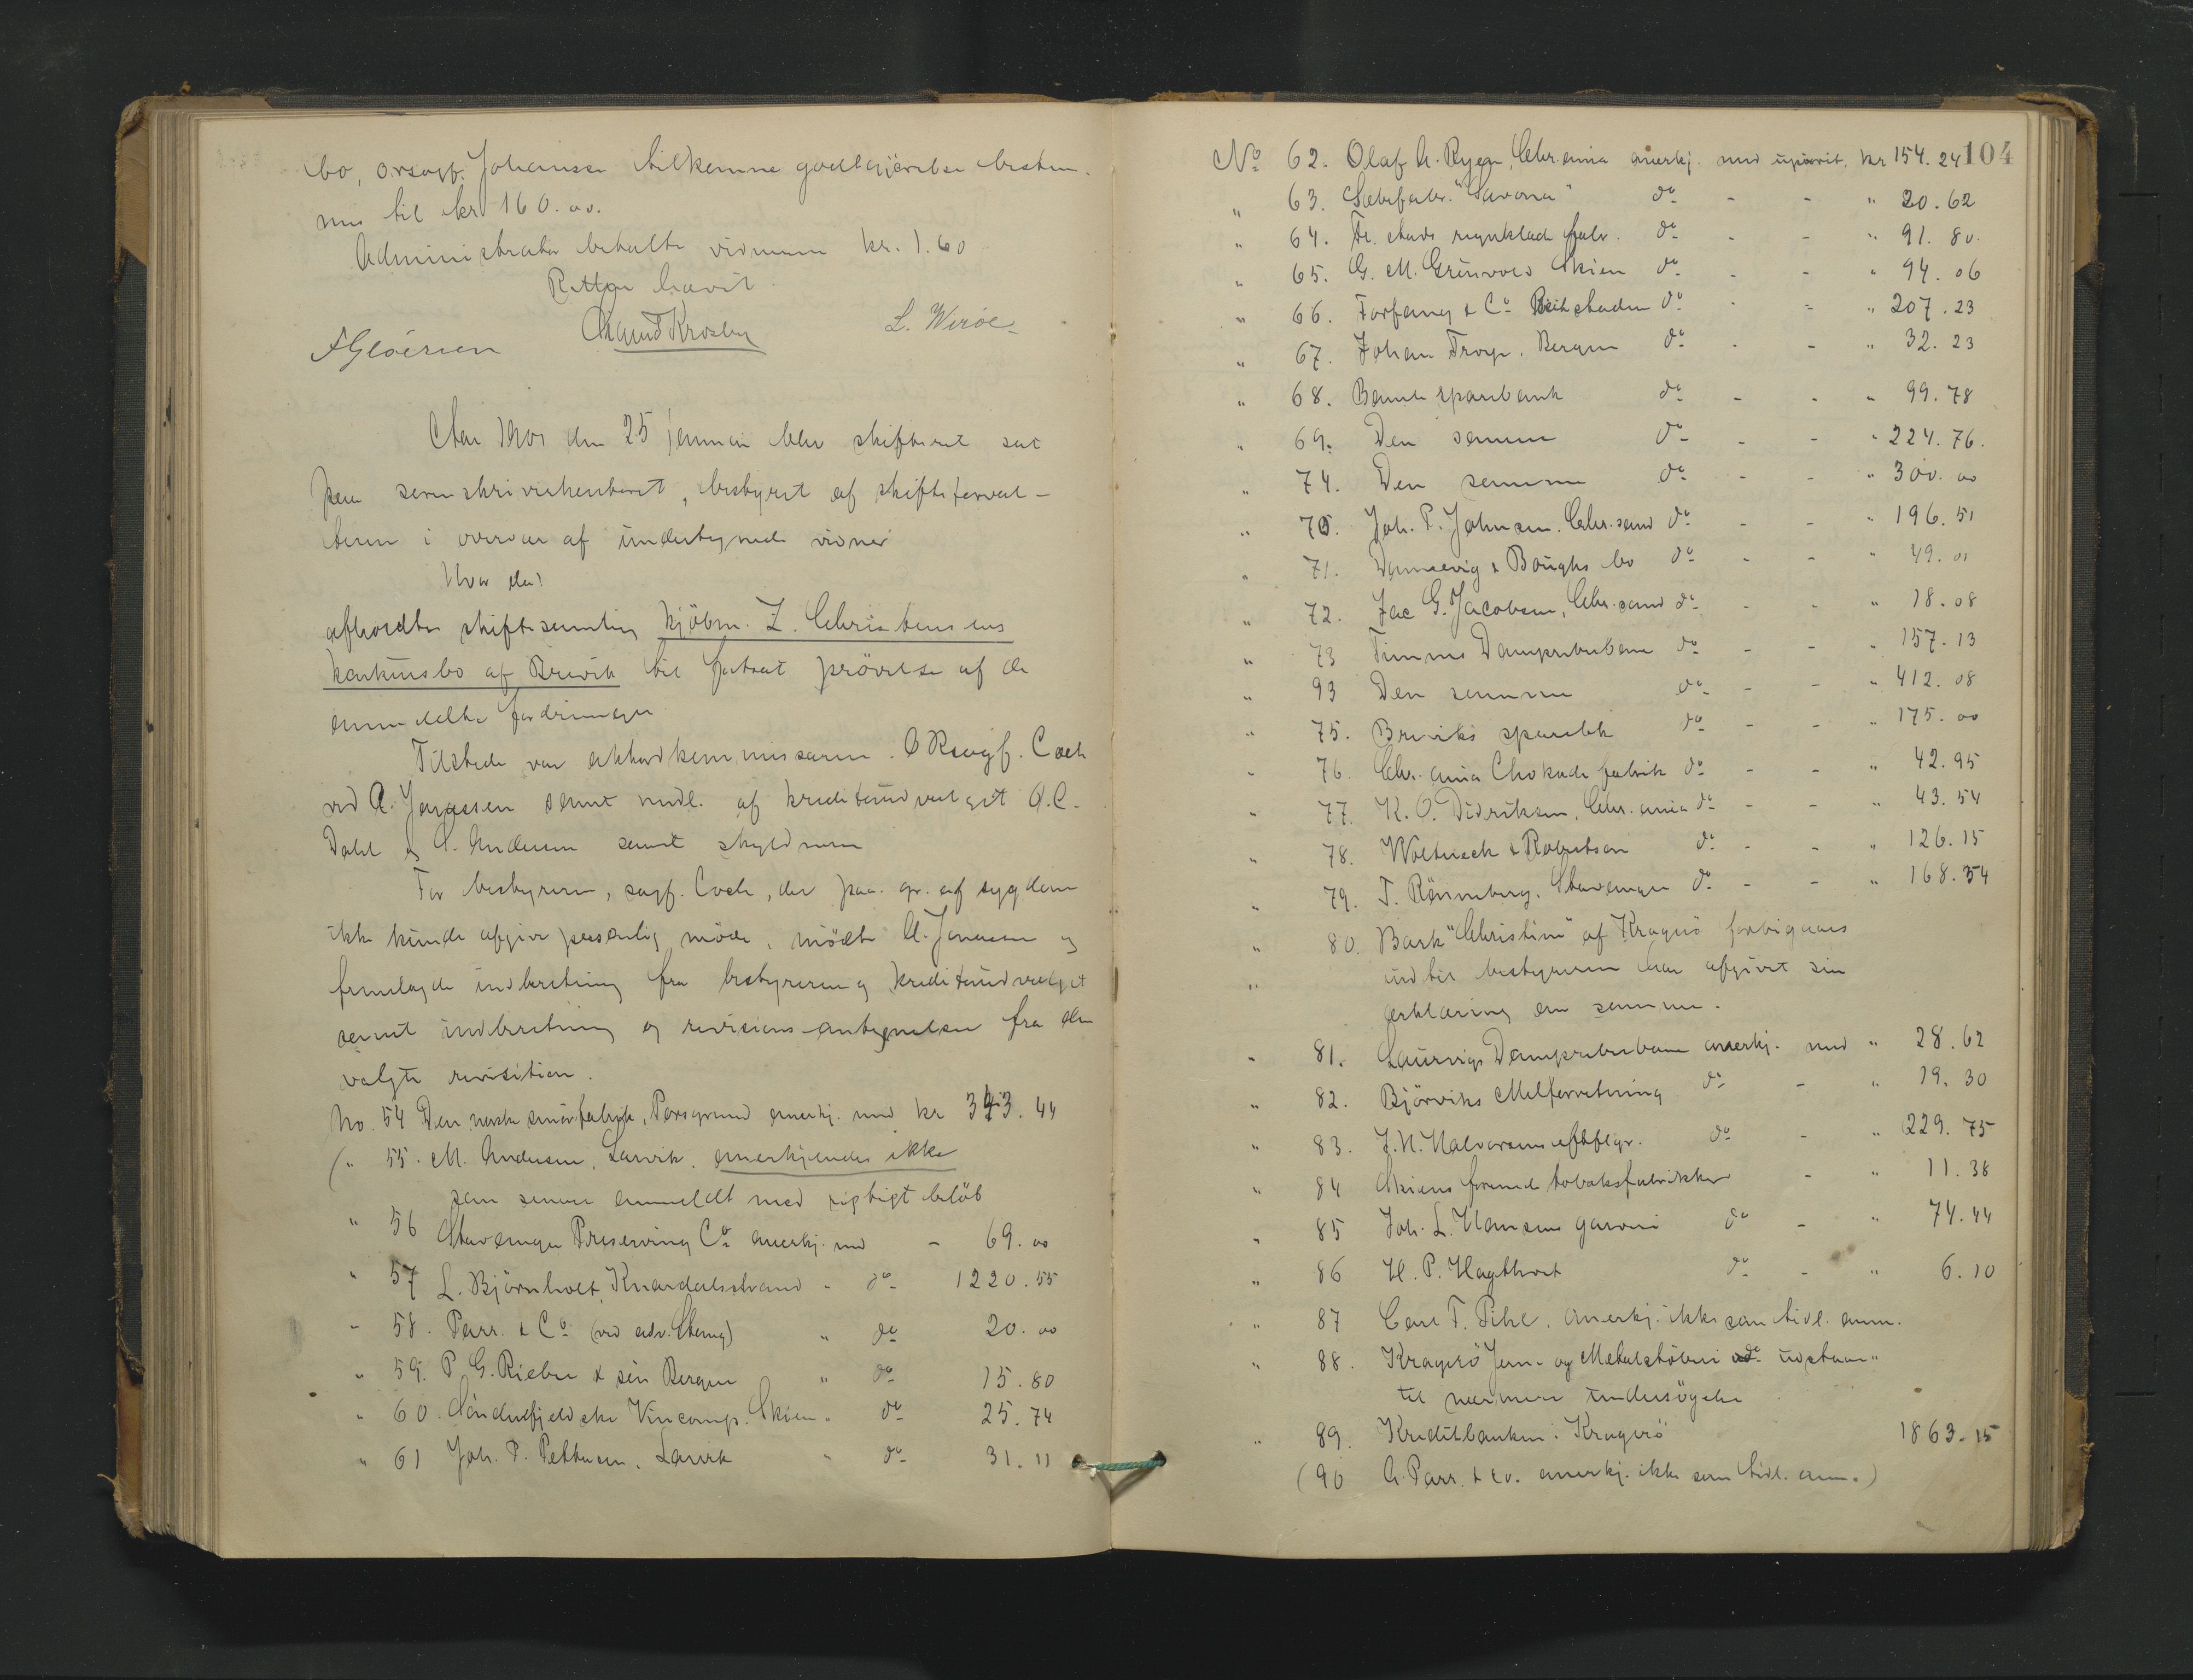 bo, orsagf. Johansen tilkomne godtgjörelse bestem-
mes til kr 160.00.
Administrator betalte vidnerne kr. 1.60
Retten hævet
AGlöersen Amund Krosby L. Wiröe
Aar 1901 den 25 januar blev skifteret sat
paa sorenskriverkontoret, bestyret af skifteforval-
teren i overvær af undertegnede vidner
Hvor da:
afholdtes skiftesamling kjöbm. Z. Christensens
konkursbo af Brevik til fortsat prövelse af de
anmeldte fordringer
Tilstede var akkordkommissæren ORsagf. Coch
ved A. Jonassen samt medl. af kreditorudvalget O.C.
Dahl og S. Andersen samt skyldneren
For bestyreren, sagf. Coch, der paa gr. af sygdom
ikke kunde afgive personlig möde, mödte A. Jonassen og
fremlagde indberetning fra bestyreren og kreditorudvalget
samt indberetning og revisions-antegnelser fra den
valgte revisition.
No. 54 Den norske smörfabrik, Porsgrund anerkj. med kr 343.44
(" 55. M. Andersen, Larvik, anerkjendes ikke
som senere anmeldt med rigtigt belöb
" 56 Stavanger Preserving Co anerkj. med - 69.00
" 57 L. Björnholt, Knardalsstrand - do 1220.55
" 58. Parr & Co (ved adv. Stang) " do 20.00
" 59. P. G. Rieber & sön Bergen " do 15.80
" 60. Söndenfjeldske Vincomp. Skien " do 25.74
" 61 Joh. P. Pettersen, Larvik " do 31.11
104
No 62. Olaf A. Ryen, Chr.ania anerkj. med uprivit. kr 154.24
" 63. Sæbefabr. "Savona" do - - " 20.62
" 64. Fr.stads regnklæde fabr. do - - " 91.80.
" 65. G. M. Grünvold Skien do - - " 94.06
" 66. Forfang & Co Beitstaden do - - " 207.23
" 67. Johan Troye. Bergen do - - " 32.23
" 68. Bamle sparebank do - - " 99.78
" 69. Den samme do - - " 224.76.
" 74. Den samme do - - " 300.00
" 70. Joh. P. Johnsen. Chr.sand do - - " 196.51
" 71. Dannevig & Boughs bo do - - " 49.01
" 72. Jac G. Jacobsen, Chr.sand do - - " 18.08
" 73 Timms Dampreberbane do - - " 157.13
" 93 Den samme do - - " 412.08
" 75. Breviks sparebk do - - " 175.00
" 76. Chr.ania Chokoladefabrik do - - " 42.95
" 77. K. O. Didriksen, Chr.ania do - - " 43.54
" 78. Woltereck & Robertson do - - " 126.15
" 79. T. Rönneberg. Stavanger do - - " 168.54
" 80. Bark "Christine" af Kragerö forbigaaes
" indtil bestyreren har afgivet sin
erklæring om samme.
" 81. Laurvigs Dampreberbane anerkj. med " 28.62
" 82. Björviks Melforretning do - " 19.30
" 83. J. N. Halvorsens eftflgr. do - " 229.75
" 84 Skiens forenede tobaksfabrikker - " 11.38
" 85 Joh. L. Hansens garveri do - " 74.44
" 86 H. P. Hagtvet do - " 6.10
" 87 Carl F. Pihl, anerkj. ikke som tidl. anm.
" 88. Kragerö Jern- og Metalstöberi udstaar
til nærmere undersögelse
" 89. Kreditbanken i Kragerö 1863.15
(90 A. Parr & co. anerkj. ikke som tidl. anm.)